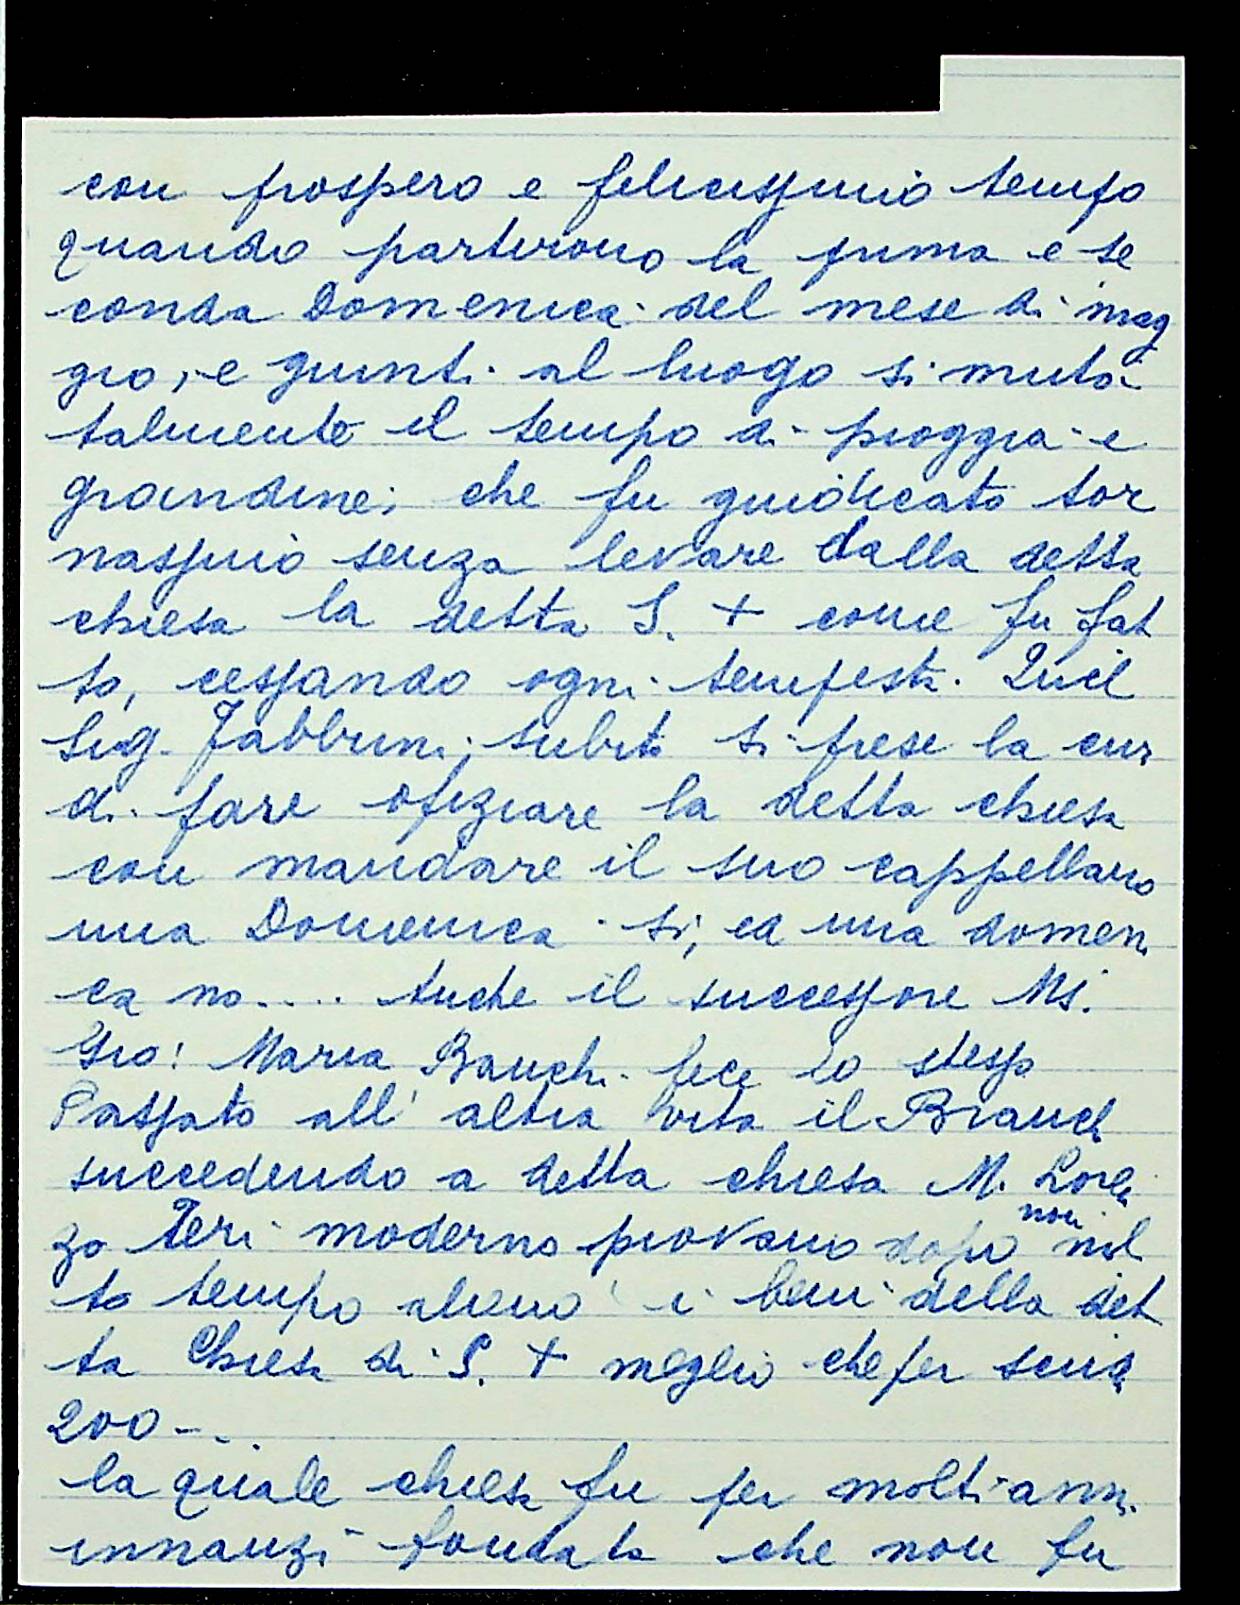 con prospero e felicissimo tempo
quando partirono la prima e se
conda Domenica del mese di mag
gio, e giunti al luogo si mutò
talmente il tempo di pioggia e
grandine, che fu giudicato tor
nassino senza levare dalla detta
chiesa la detta S. + come fu fat
to, cessando ogni tempesta.
Sig. Fabbrini, subito si prese la cura
di fare ofiziare la detta chiesa
con mandare il suo cappellano
una Domenica si, ed una domeni
ca no.... Anche il successore Ms.
Gio: Maria Bianchi fece lo stesso
Passato all' altra vita il Bianchi
succedendo a detta chiesa M. Loren
zo Neri moderno piovano dopo non mol
to tempo alienò i beni della det
ta Chiesa di S. + meglio che per scudi
200 -.
la quale chiesa fu per molti anni
innanzi fondata che non fu